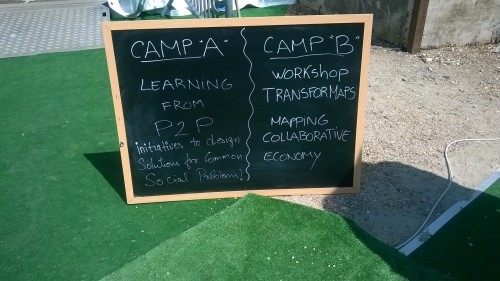 CAMP "A"
LEARNING
FROM
P2P
initiatives to design
Solutions for Common
Social Problems?
CAMP "B"
WORKSHOP
TRANSFORMAPS
MAPPING
COLLABORATIVE
ECONOMY